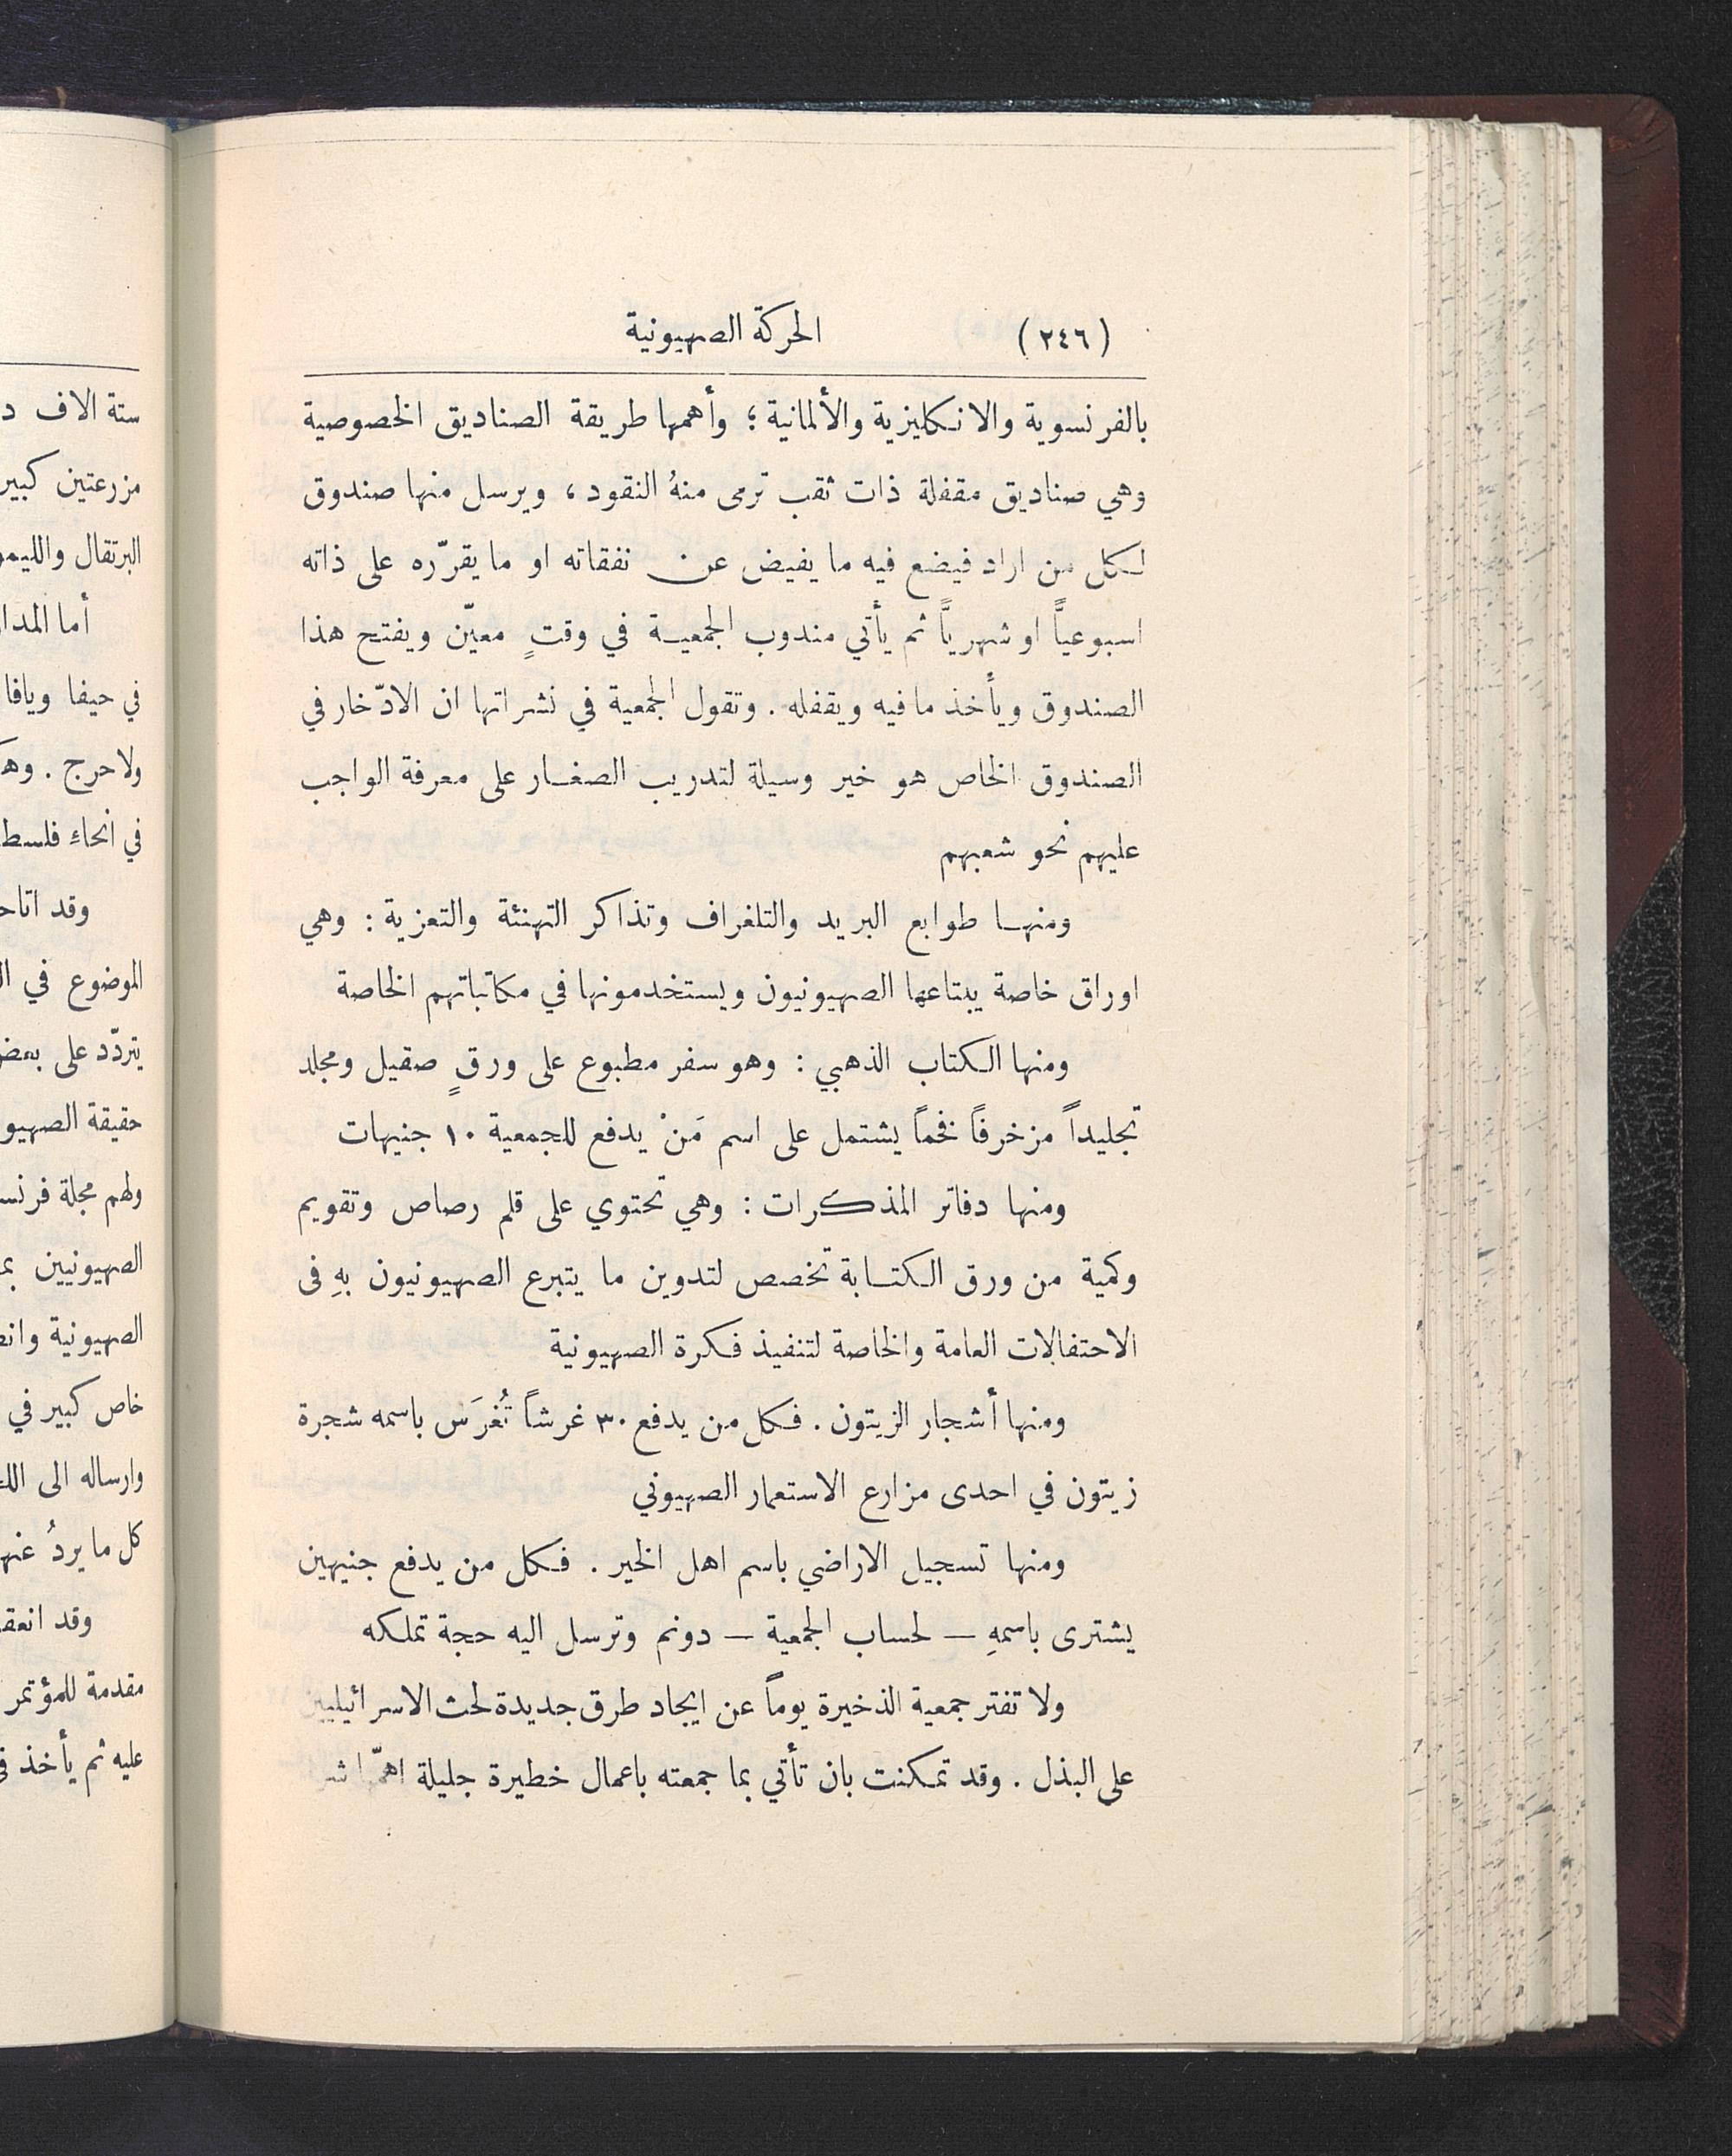 (٢٤٦) الحركة الصهيونية
بالفرنسوية والانكليزية والألمانية ؛ وأهمها طريقة الصناديق الخصوصية
وهي صناديق مقفلة ذات ثقب ترمى منهُ النقود ، ويرسل منها صندوق
لكل من اراد فيضع فيه ما يفيض عن نفقاته او ما يقرّره على ذاته
اسبوعيًّا او شهريًّا ثم يأتي مندوب الجمعية في وقتٍ معيّن ويفتح هذا
الصندوق ويأخذ ما فيه ويقفله . وتقول الجمعية في نشراتها ان الادّخار في
الصندوق الخاص هو خير وسيلة لتدريب الصغار على معرفة الواجب
عليهم نحو شعبهم
ومنها طوابع البريد والتلغراف وتذاكر التهنئة والتعزية : وهي
اوراق خاصة يبتاعها الصهيونيون ويستخدمونها في مكاتباتهم الخاصة
ومنها الكتاب الذهبي : وهو سفر مطبوع على ورقٍ صقيل ومجلد
تجليداً مزخرفاً فخماً يشتمل على اسم مَنْ يدفع للجمعية ١٠ جنيهات
ومنها دفاتر المذكرات : وهي تحتوي على قلم رصاص وتقويم
وكمية من ورق الكتابة تخصص لتدوين ما يتبرع الصهيونيون بهِ فى
الاحتفالات العامة والخاصة لتنفيذ فكرة الصهيونية
ومنها أشجار الزيتون . فكل من يدفع ٣٠ غرشاً تُغرَس باسمه شجرة
زيتون في احدى مزارع الاستعمار الصهيوني
ومنها تسجيل الاراضي باسم اهل الخير . فكل من يدفع جنيهين
يشترى باسمهِ — لحساب الجمعية — دونم وترسل اليه حجة تملكه
ولا تفتر جمعية الذخيرة يوماً عن ايجاد طرق جديدة لحث الاسرائيليين
على البذل . وقد تمكنت بان تأتي بما جمعته باعمال خطيرة جليلة اهمّها
ستة الاف
مزرعتين
البرتقال
أما
في حيفا ويافا
ولا حرج .
في انحاءِ
وقد
الموضوع في
يتردّد على
حقيقة
ولهم مجلة
الصهيونيين
الصهيونية
خاص كبير في
وارساله الى
كل ما يردُ
وقد
مقدمة للمؤتمر
عليه ثم يأخذ